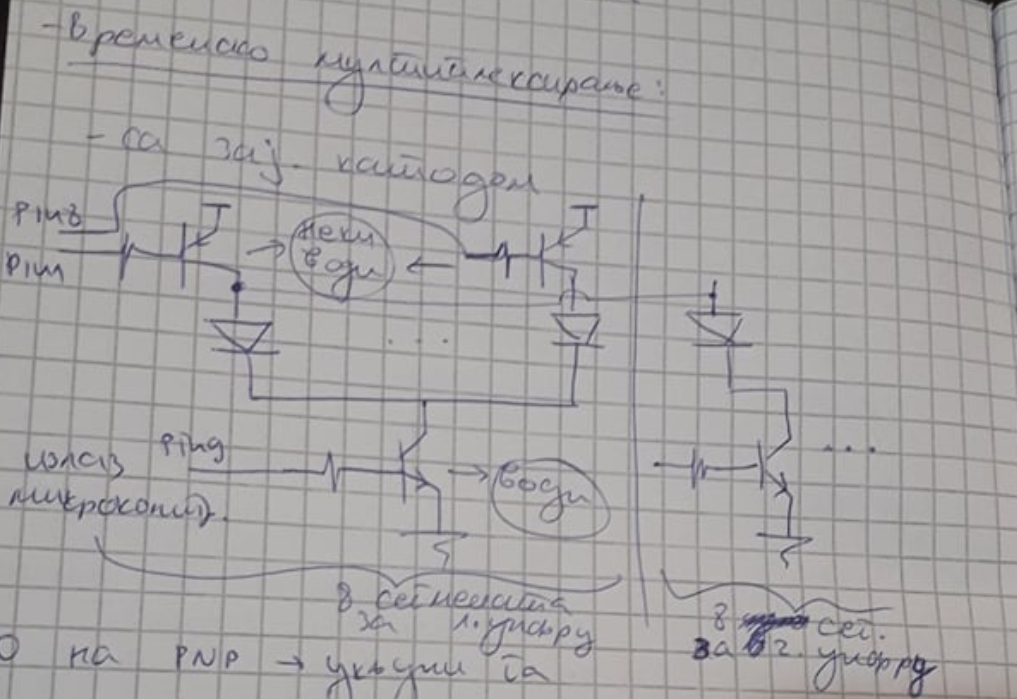 - Временско мултиплексирање:
- са зај. катодом
Pin8
Pin1
неки
води
. . .
Pin9
излаз
микроконтр.
води
. . .
8 сегмената
за 1. цифру
8 сег.
за 2. цифру
0 на PNP → укључи га